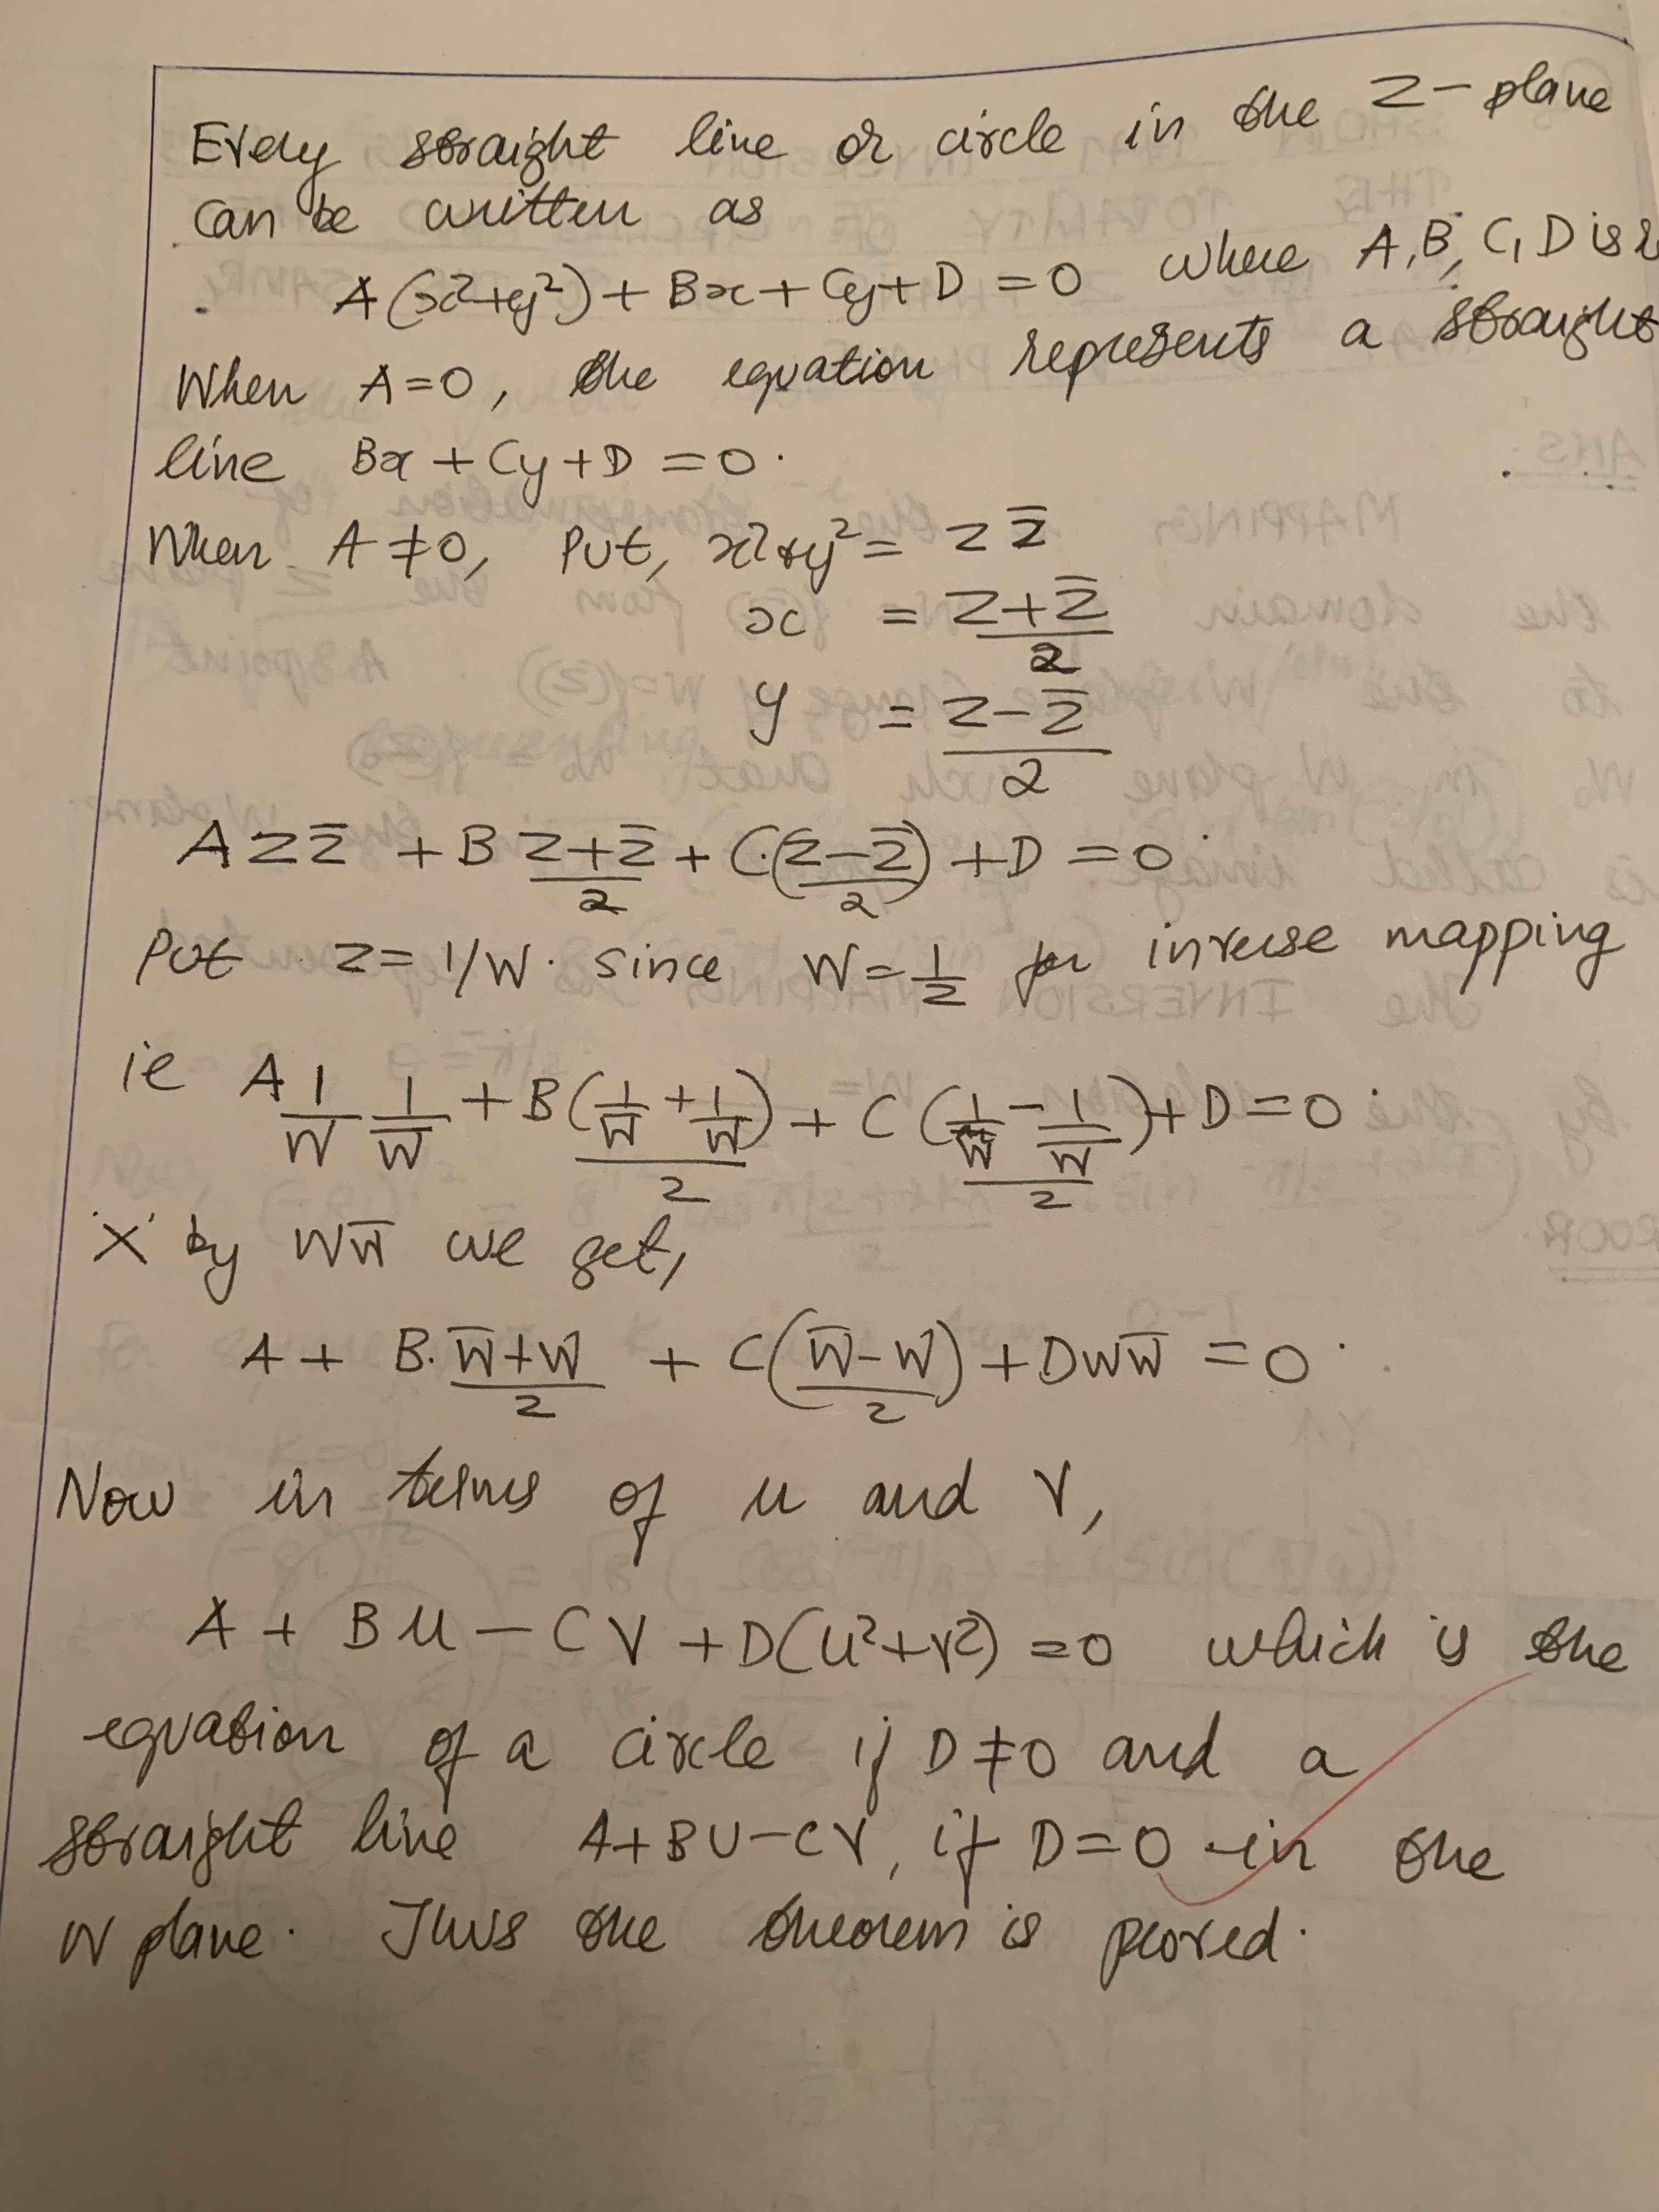 Every straight line or circle in the Z-plane
can be written as
A(x²+y²) + Bx + Cy + D = 0 where A, B, C, D is
When A=0, the equation represents a straight
line Bx + Cy + D = 0.
When A ≠ 0, Put, x²+y² = z z̅
x = (z+z̅)/2
y = (z−z̅)/2
A z z̅ + B (z+z̅)/2 + C.(z−z̅)/2 + D = 0
Put z = 1/W. since W = 1/z for inverse mapping
ie A 1/W 1/W̅ + B(1/W + 1/W̅)/2 + C(1/W − 1/W̅)/2 + D = 0.
X by WW̅ we get,
A + B. (W̅+W)/2 + C(W̅−W)/2 + DWW̅ = 0.
Now in terms of u and V,
A + BU − CV + D(U²+V²) = 0 which is the
equation of a circle if D ≠ 0 and a
straight line A+BU−CV, if D=0 in the
W plane. Thus the theorem is proved.